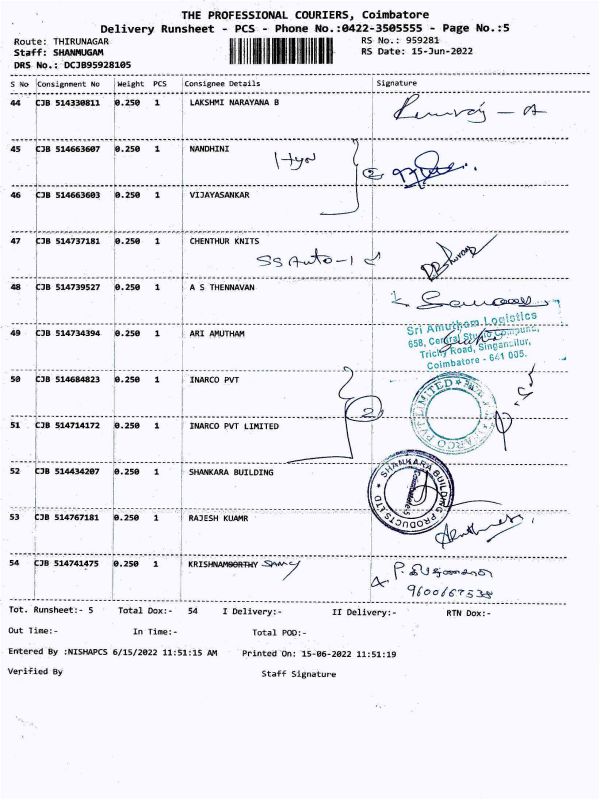 THE PROFESSIONAL COURIERS, Coimbatore
Delivery Runsheet - PCS - Phone No.:0422-3505555 - Page No.:5
Route: THIRUNAGAR RS No.: 959281
Staff: SHANMUGAM RS Date: 15-Jun-2022
DRS No.: DCJB95928105
S No Consignment No Weight PCS Consignee Details Signature
44 CJB 514330811 0.250 1 LAKSHMI NARAYANA B
45 CJB 514663607 0.250 1 NANDHINI
46 CJB 514663603 0.250 1 VIJAYASANKAR
47 CJB 514737181 0.250 1 CHENTHUR KNITS
SS Auto-1
48 CJB 514739527 0.250 1 A S THENNAVAN
49 CJB 514734394 0.250 1 ARI AMUTHAM
Sri Amutham Logistics
658, Central Studio Compound,
Trichy Road, Singanallur,
Coimbatore - 641 005.
50 CJB 514684823 0.250 1 INARCO PVT
2
51 CJB 514714172 0.250 1 INARCO PVT LIMITED
INARCO PVT LIMITED
52 CJB 514434207 0.250 1 SHANKARA BUILDING
SHANKARA BUILDING PRODUCTS LTD
Coimbatore-5
53 CJB 514767181 0.250 1 RAJESH KUAMR
54 CJB 514741475 0.250 1 KRISHNAMOORTHY Samy
9600167538
Tot. Runsheet:- 5 Total Dox:- 54 I Delivery:- II Delivery:- RTN Dox:-
Out Time:- In Time:- Total POD:-
Entered By :NISHAPCS 6/15/2022 11:51:15 AM Printed On: 15-06-2022 11:51:19
Verified By Staff Signature